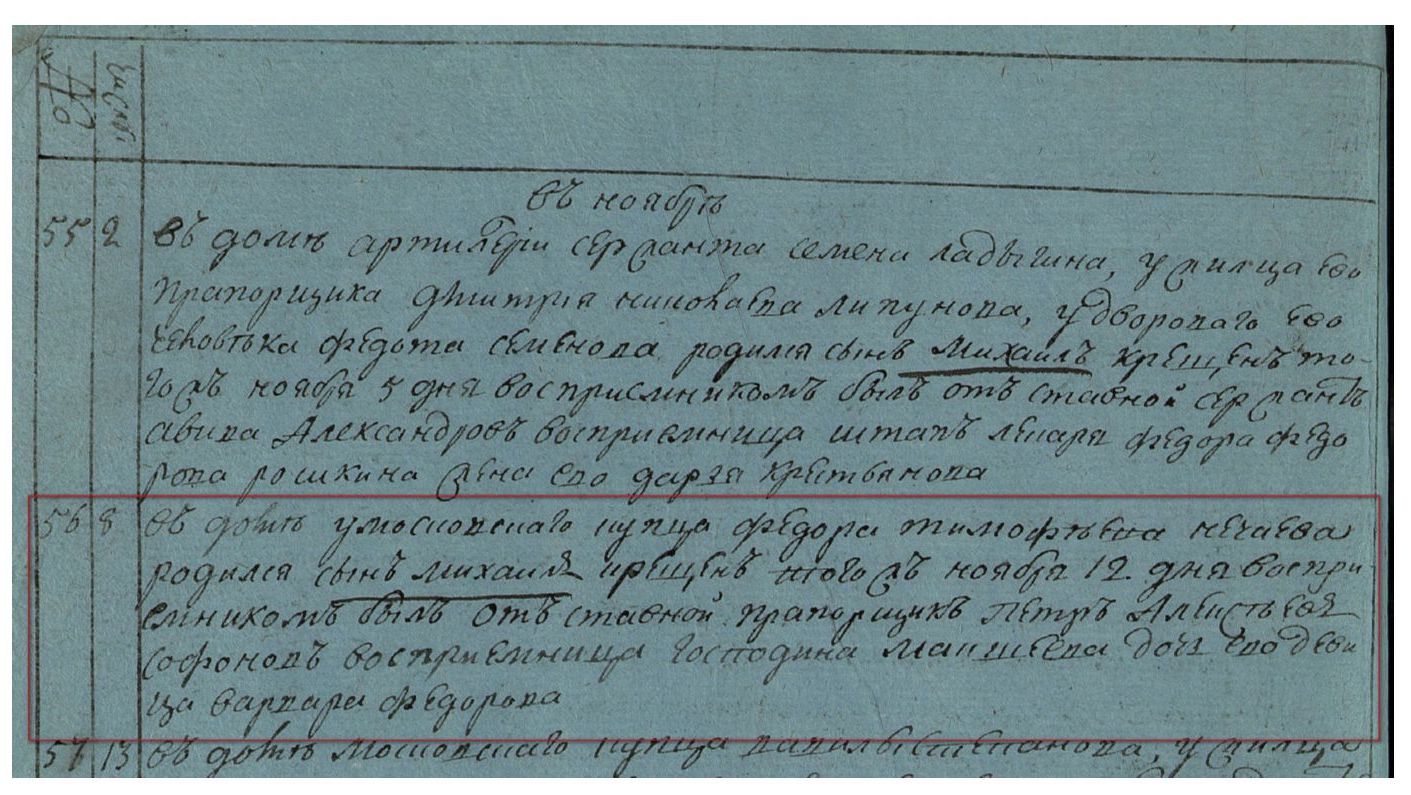 №
число
въ ноябрѣ
55 2 въ домѣ артилерiи сержанта семена ладыгина, у жилца ево
прапорщика дмитрiя николаева липунова, у дворова‍го ево
человѣка федота семенова родился сынъ михаилъ крещенъ то-
гожъ ноября 5 дня восприемникомъ былъ отъ ставной сержантъ
авива александровъ восприемница штапъ лекаря федора федо
рова рошкина жена ево дарья
56 8 въ домѣ у московскаго купца федора тимофѣева нечаева
родился сынъ михаилъ крещенъ тогожъ ноября 12 дня воспри
емникомъ былъ отъ ставной прапорщикъ петръ
софоновъ восприемница господина дочь ево деви
ца варвара федорова
57 13 въ домѣ московскаго купца вавилы степанова, у жилца